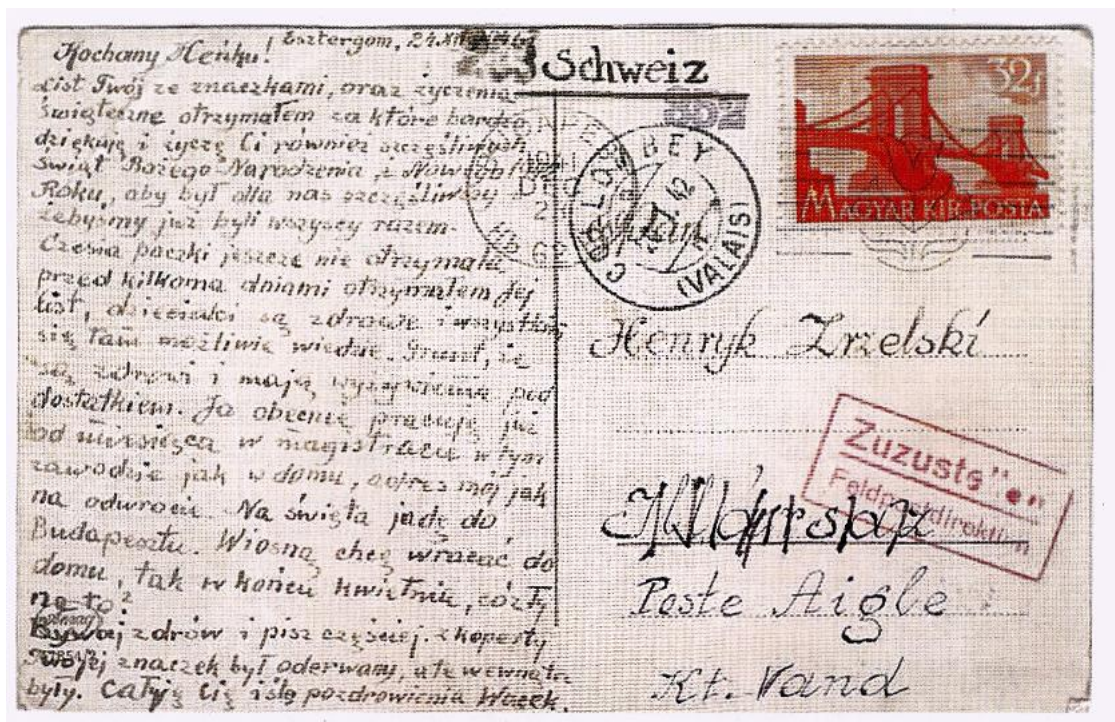 Kochany Heńku! Esztergom, 24.XII
List Twój ze znaczkami, oraz życzenia
świąteczne otrzymałem za które bardzo
dziękuję i życzę Ci również szczęśliwych
świąt Bożego Narodzenia i Nowego
Roku, aby był dla nas szczęśliwszy
żebyśmy już byli wszyscy razem.
Czesia paczki jeszcze nie otrzymała,
przed kilkoma dniami otrzymałem Jej
list, dzieciaki są zdrowe i wszystkim
się tam możliwie wiedzie. Grunt, że
są zdrowi i mają wyżywienia pod
dostatkiem. Ja obecnie pracuję już
od miesiąca w magistracie w tym
zawodzie jak w domu, adres mój jak
na odwrocie. Na święta jadę do
Budapesztu. Wiosną chcę wracać do
domu, tak w końcu kwietnia, cóż Ty
na to?
Bywaj zdrów i pisz częściej. Z koperty
Twojej znaczek był oderwany, ale wewnątrz
były. Całuję Cię i ślę pozdrowienia Wacek.
Schweiz
32f
MAGYAR KIR. POSTA
COLLOMBEY
(VALAIS)
Henryk Zrzelski
Zuzusts"en
Feldpostdirektion
Poste Aigle
Kt. Vand